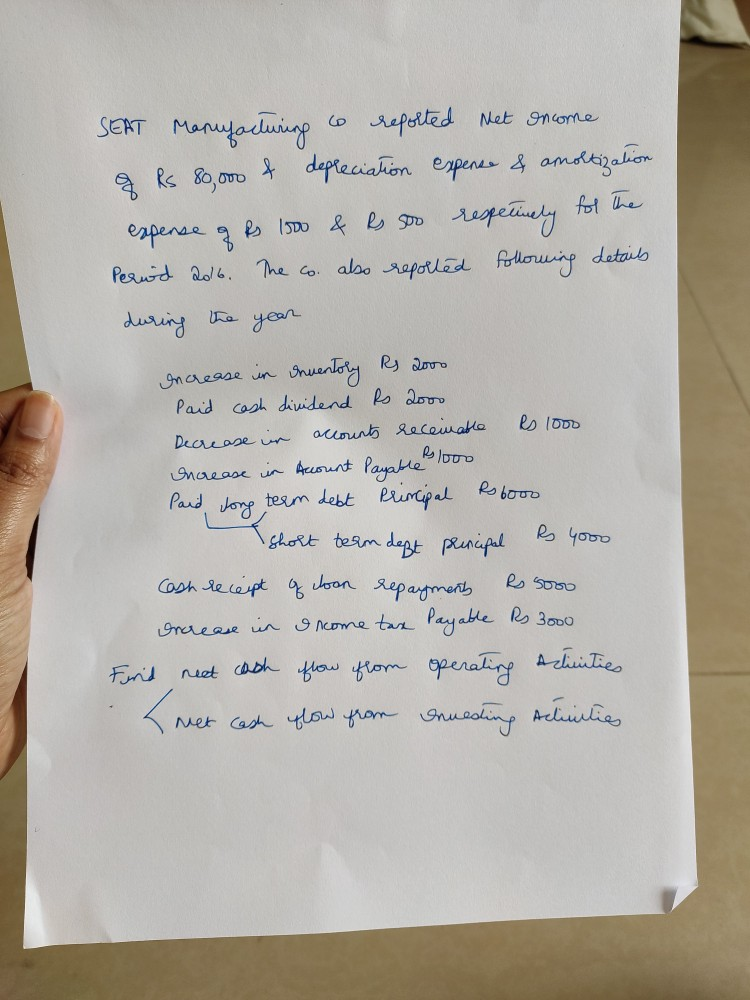 SEAT Manufacturing Co reported Net Income
of Rs 80,000 & depreciation expense & amortization
expense of Rs 1500 & Rs 500 respectively for the
Period 2016. The Co. also reported following details
during the year
Increase in Inventory Rs 2000
Paid cash dividend Rs 2000
Decrease in accounts receivable Rs 1000
Increase in Account Payable Rs 1000
Paid long term debt Principal Rs 6000
short term debt principal Rs 4000
Cash receipt of loan repayments Rs 5000
Increase in Income tax Payable Rs 3000
Find net cash flow from operating Activities
Net cash flow from Investing Activities